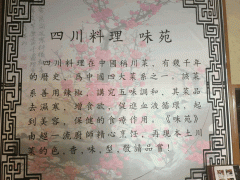 四川料理 味苑
四川料理在中國稱川菜，有幾千年
的歷史，為中國四大菜系之一，該菜
系善用辣椒，講究五味調和，其菜品
去濕寒，增食慾，促進血液循環，起
到美容、保健的食療作用。《味苑》
由超一流廚師精心烹飪，再現本土川
菜的色，香，味，型，敬請品嘗！